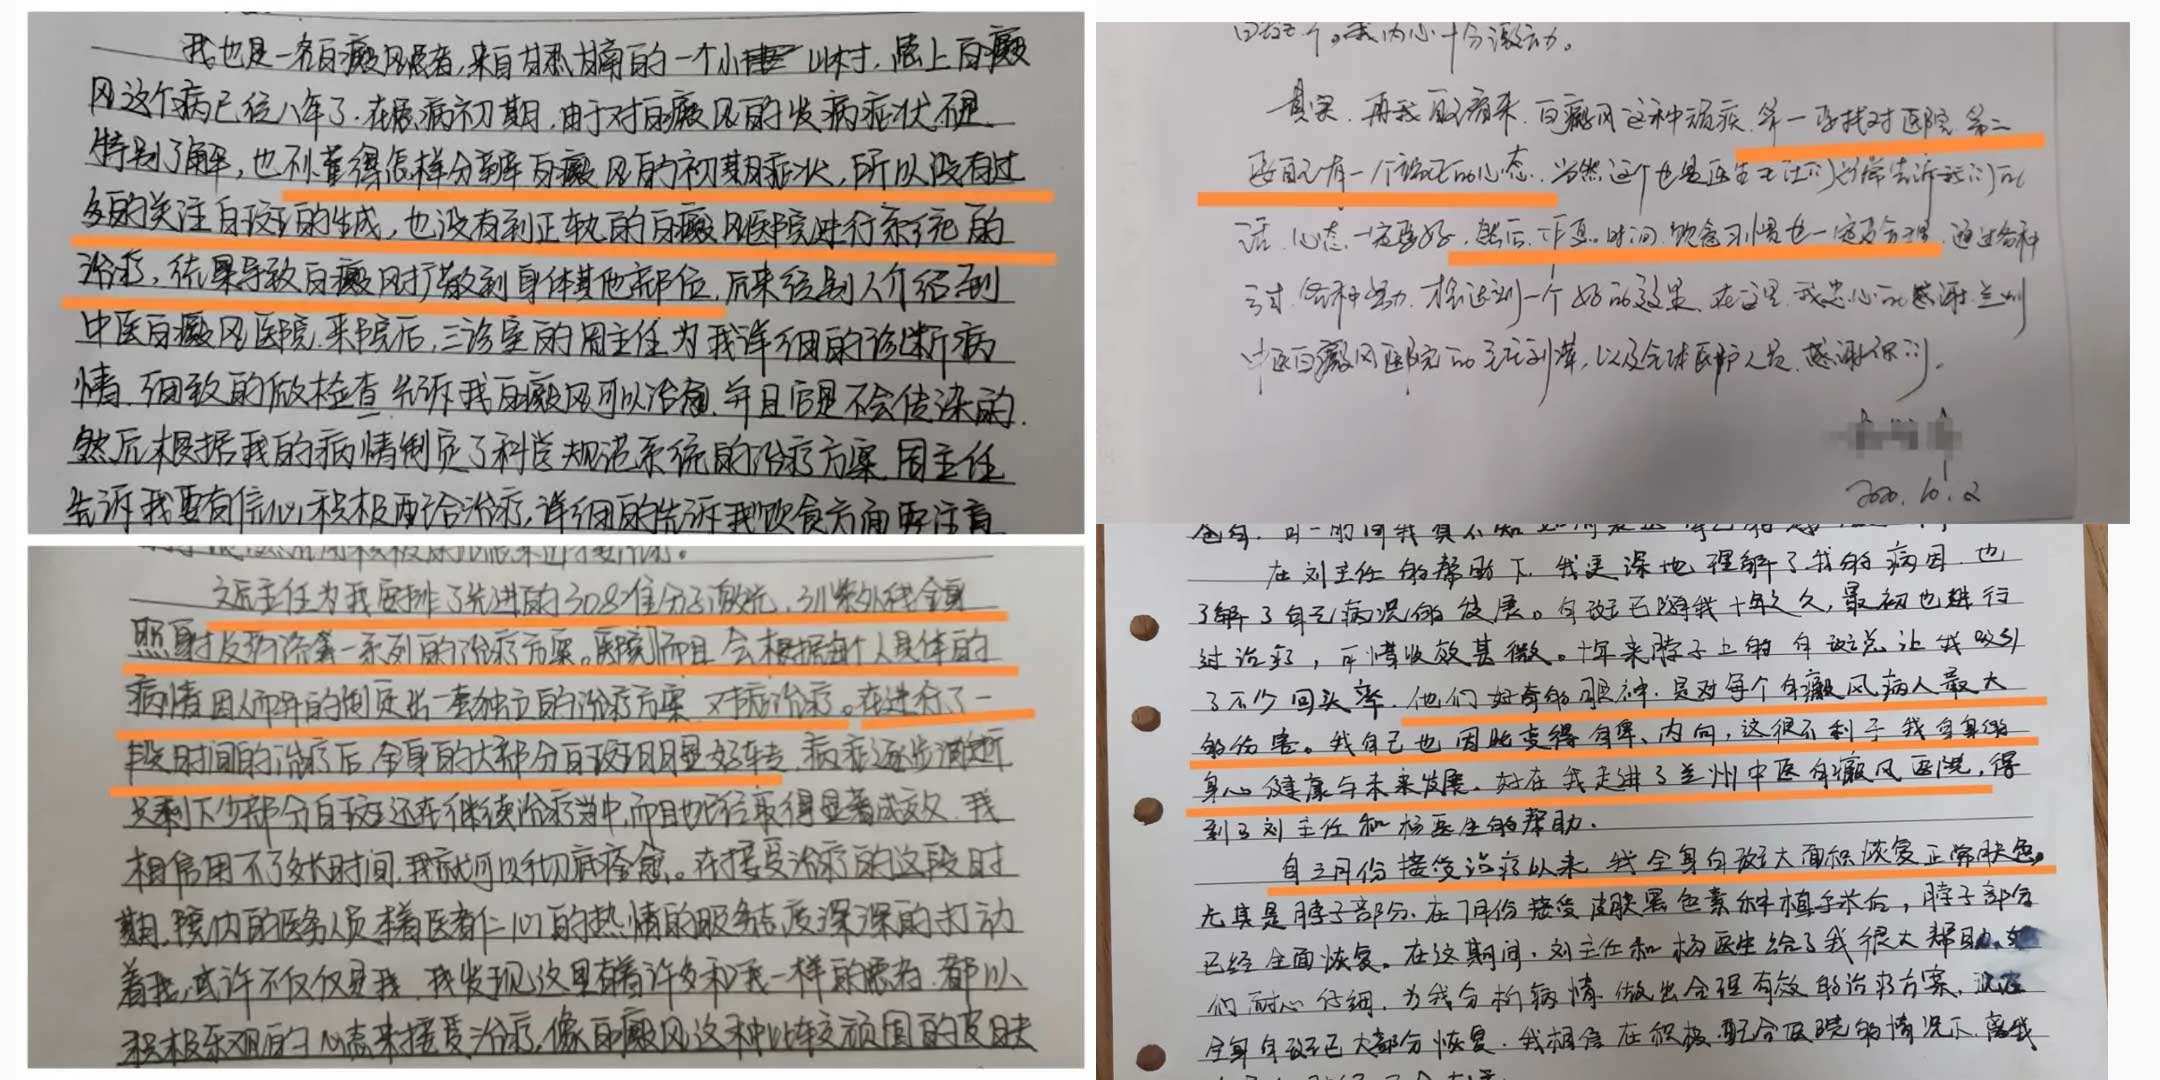 我也是一名白癜风患者,来自甘肃甘南的一个小山村,患上白癜
风这个病已经八年了.在患病初期,由于对白癜风的发病症状不是
特别了解,也不懂得怎样分辨白癜风的初期症状,所以没有过
多的关注白斑的生成,也没有到正轨的白癜风医院进行系统的
治疗,结果导致白癜风扩散到身体其他部位,后来经别人介绍到
中医白癜风医院.来院后,三诊室的周主任为我详细的诊断病
情,细致的做检查,告诉我白癜风可以治愈,并且它是不会传染的.
然后根据我的病情制定了科学规范系统的治疗方案,周主任
告诉我要有信心,积极配合治疗,详细的告诉我饮食方面要注意
主任为我安排了先进的308准分子激光,311紫外线全身
照射及药浴等一系列的治疗方案。医院而且会根据每个人具体的
病情因人而异的制定出一套独立的治疗方案,对症治疗。在进行了一
段时间的治疗后,全身的大部分白斑明显好转,病症逐步消逝
只剩下少部分白斑还在继续治疗当中,而且也已经取得显著成效,我
相信用不了多长时间,我就可以彻底痊愈。在接受治疗的这段时
期,院内的医务人员本着医者仁心的热情的服务态度深深的打动
着我,或许不仅仅是我,我发现这里有着许多和我一样的患者,都以
积极乐观的心态来接受治疗,像白癜风这种比较顽固的皮肤
我内心十分激动。
其实,再我看来,白癜风这种顽疾,第一要找对医院,第二
要自己有一个端正的心态,当然这个也是医生主任们经常告诉我们的
话,心态一定要好,然后,作息时间,饮食习惯也一定要合理,通过各种
各种努力,才能达到一个好的效果,在这里,我忠心的感谢兰州
中医白癜风医院的主任刘萍,以及全体医护人员,感谢你们。
2020.10.2
在刘主任的帮助下,我更深地理解了我的病因,也
了解了自己病况的发展。白斑已随我十年之久,最初也进行
过治疗,可惜收效甚微。十年来脖子上的白斑总让我吸引
了不少回头率,他们好奇的眼神,是对每个白癜风病人最大
的伤害。我自己也因此变得自卑、内向,这很不利于我自身的
身心健康与未来发展。好在我走进了兰州中医白癜风医院,得
到了刘主任和杨医生的帮助.
自三月份接受治疗以来,我全身白斑大面积恢复正常肤色。
尤其是脖子部分,在7月份接受皮肤黑色素种植手术后,脖子部分
已经全面恢复。在这期间,刘主任和杨医生给了我很大帮助,她
们耐心仔细,为我分析病情,做出合理有效的治疗方案,现在
全身白斑已大部分恢复.我相信在积极配合医院的情况下,离我